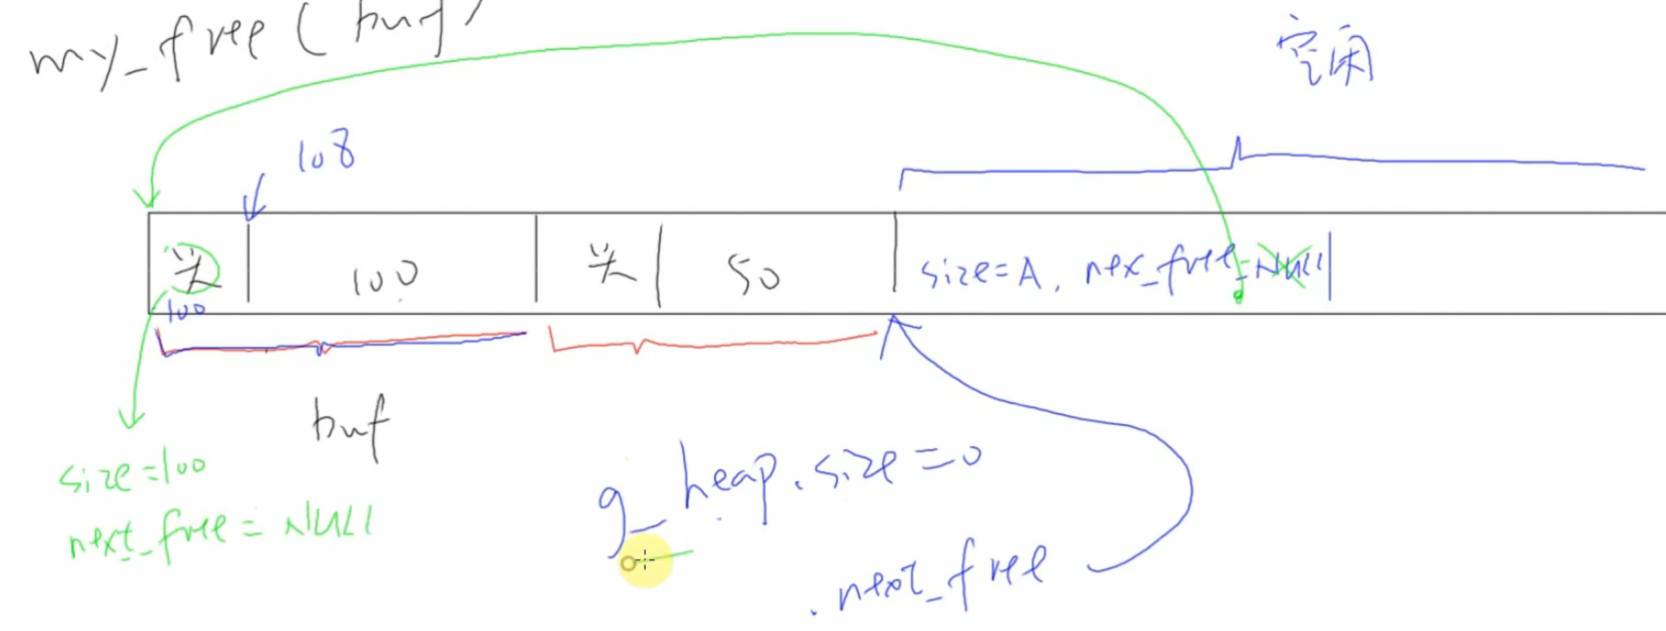 my_free(buf)
空闲
108
头 100 头 50 size=A, nex_free=NULL
100
buf
size=100
next_free=NULL
g_heap.size=0
.next_free